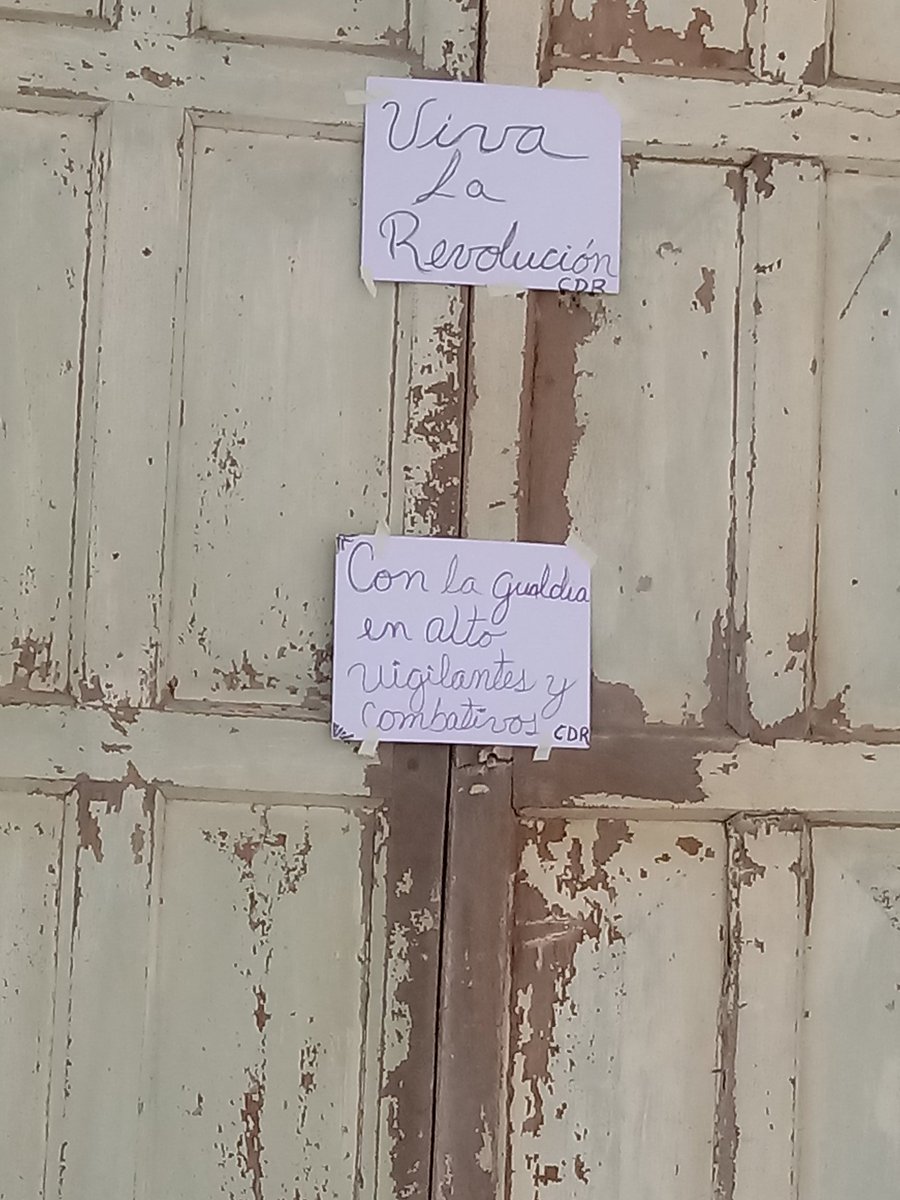 Viva
La
Revolución
CDR
Con la gualdia
en alto
vigilantes y
combativos
CDR